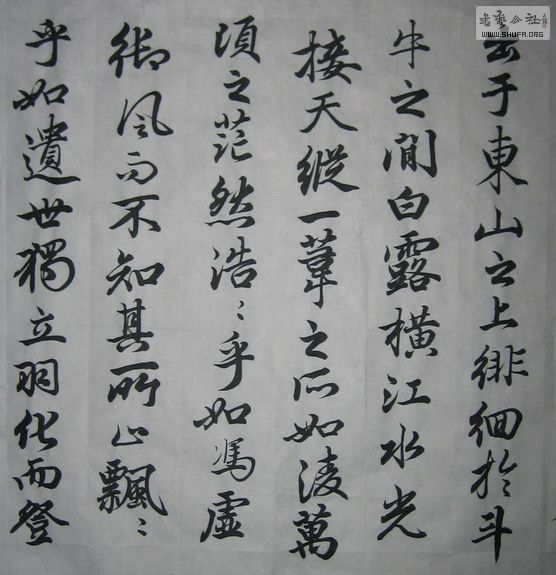 出于東山之上徘徊於斗
牛之間白露橫江水光
接天縱一葦之所如凌萬
頃之茫然浩〻乎如馮虛
御風而不知其所止飄〻
乎如遺世獨立羽化而登
書藝公社
WWW.SHUFA.ORG